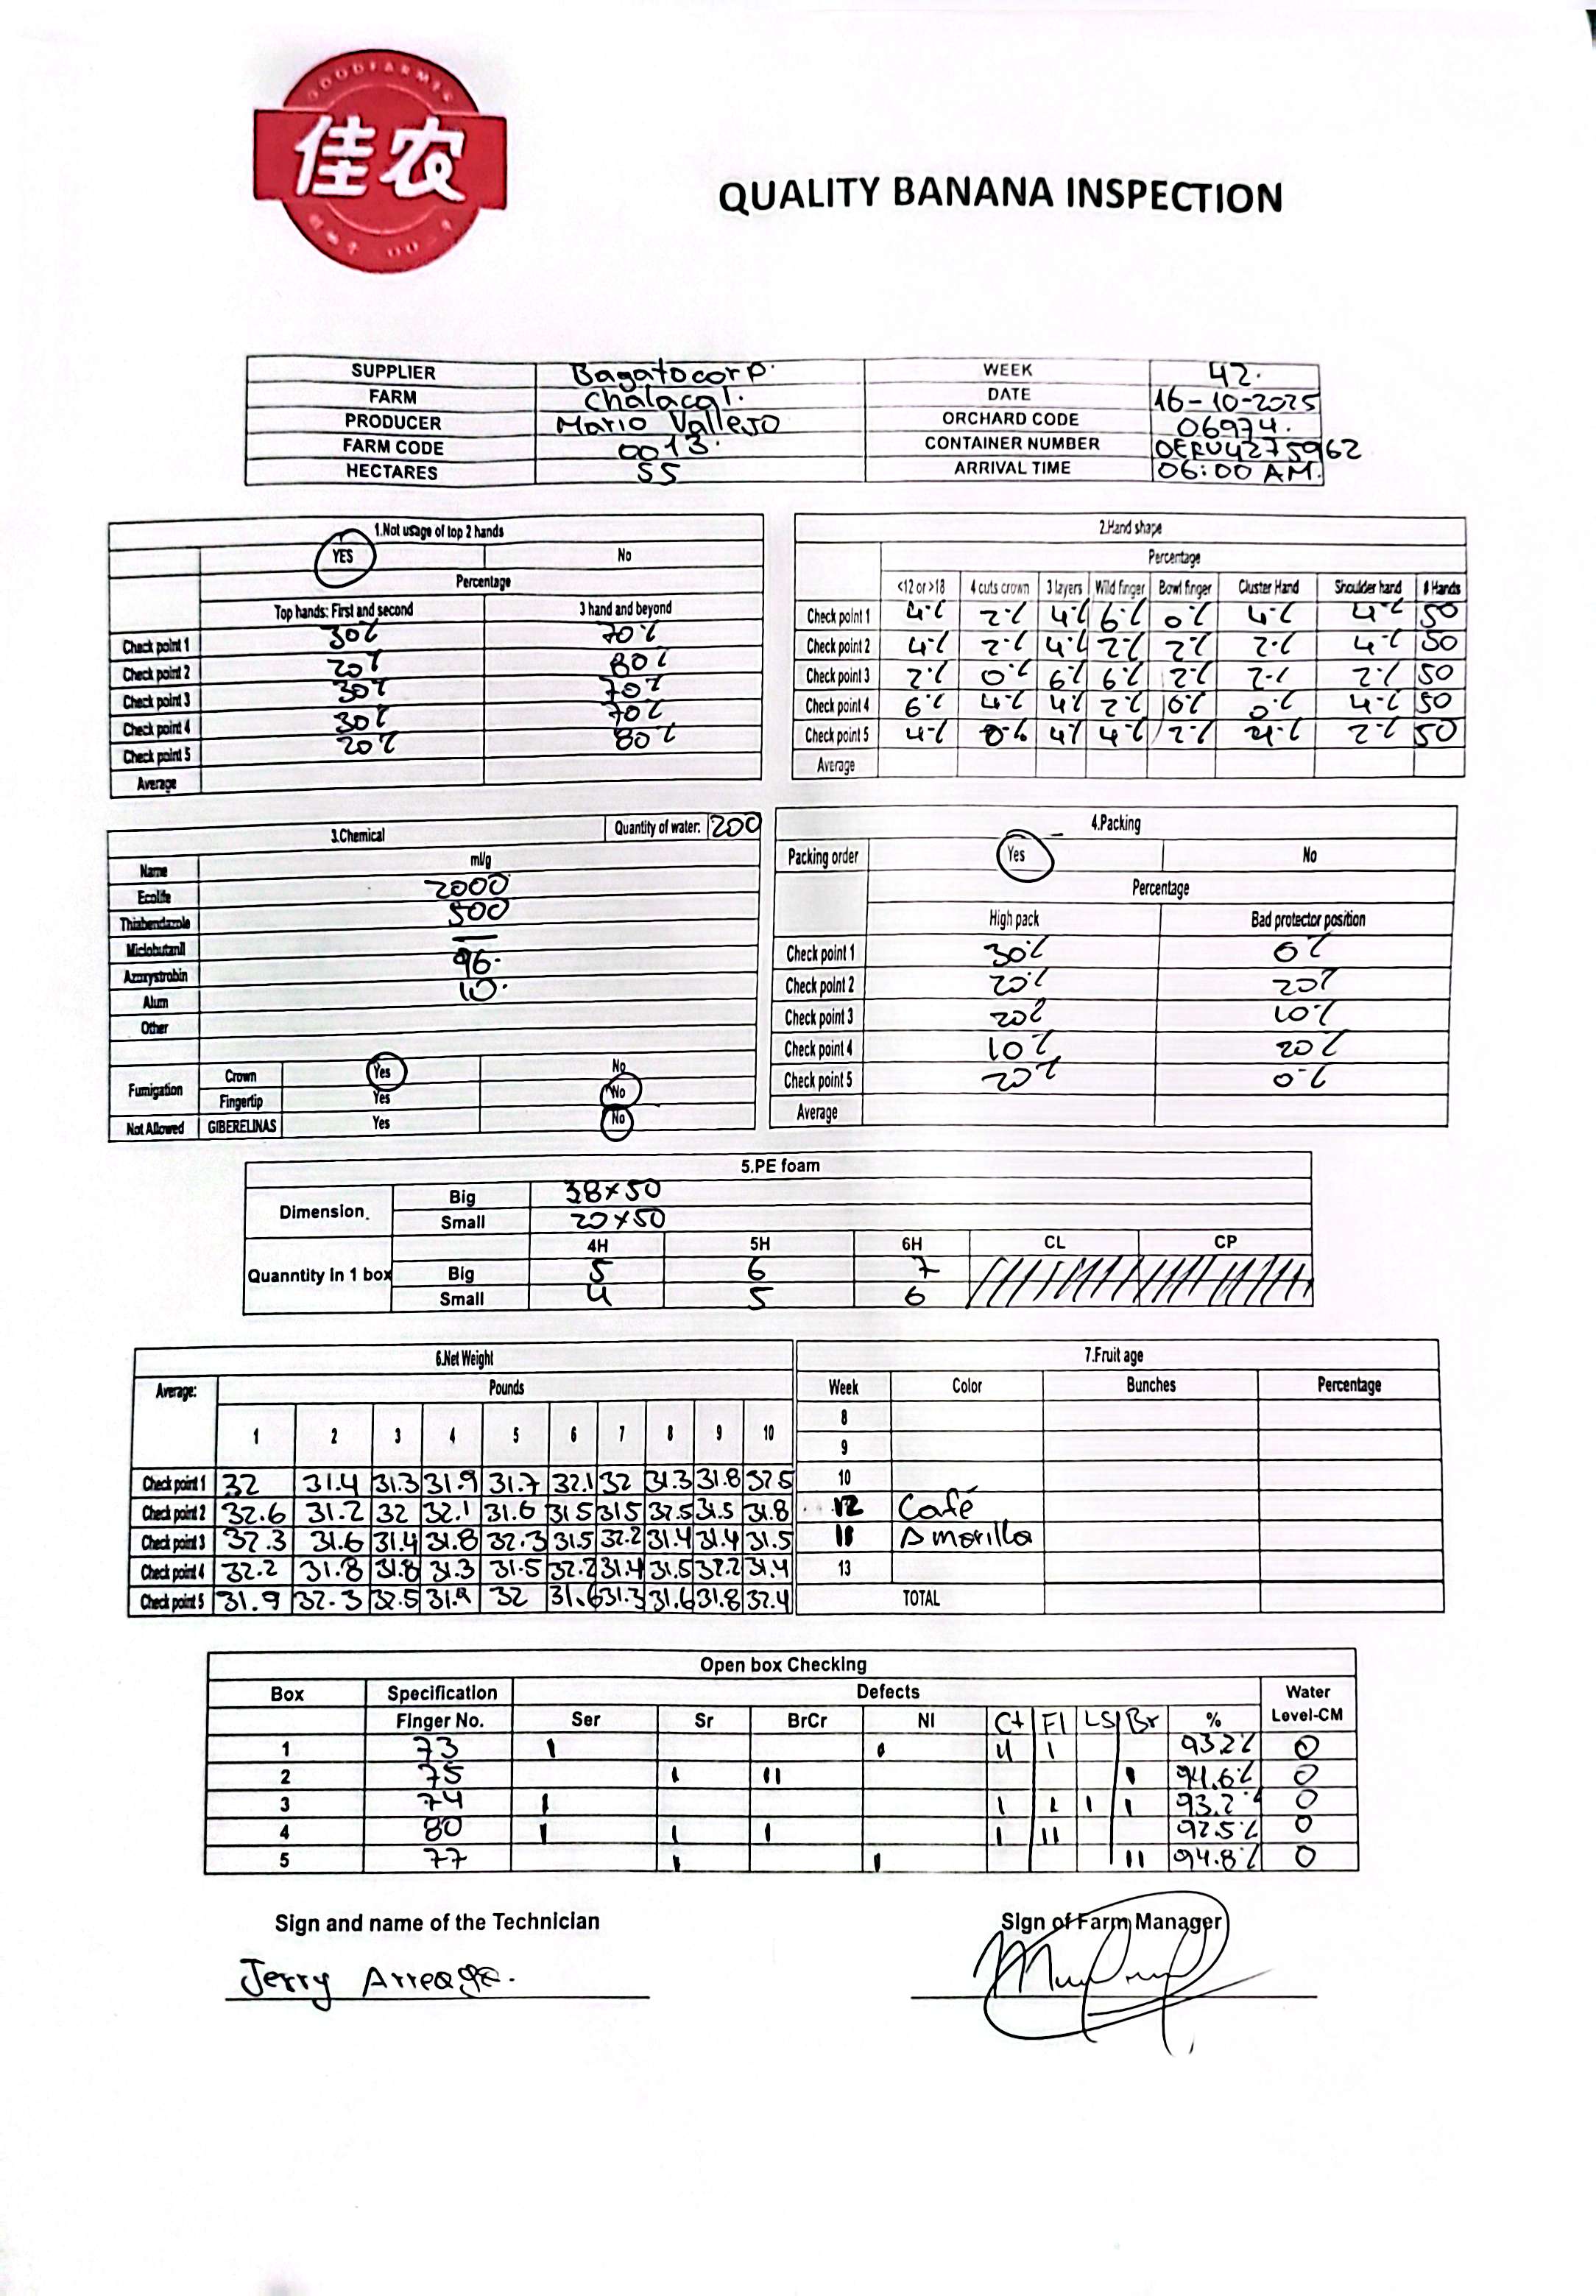 GOODFARMER
佳农
QUALITY BANANA INSPECTION
SUPPLIER Bagatocorp. WEEK 42.
FARM Chalacal. DATE 16-10-2025
PRODUCER Mario Vallejo ORCHARD CODE 06974.
FARM CODE 0013. CONTAINER NUMBER OERU4275962
HECTARES 55 ARRIVAL TIME 06:00 AM.
1.Not usage of top 2 hands
YES No
Percentage
Top hands: First and second 3 hand and beyond
Check point 1 30% 70%
Check point 2 20% 80%
Check point 3 30% 70%
Check point 4 30% 70%
Check point 5 20% 80%
Average
2.Hand shape
Percentage
<12 or >18 4 cuts crown 3 layers Wild finger Bowl finger Cluster Hand Shoulder hand # Hands
Check point 1 4% 2% 4% 6% 0% 4% 4% 50
Check point 2 4% 2% 4% 2% 2% 2% 4% 50
Check point 3 2% 0% 6% 6% 2% 2% 2% 50
Check point 4 6% 4% 4% 2% 0% 0% 4% 50
Check point 5 4% 0% 4% 4% 2% 4% 2% 50
Average
3.Chemical Quantity of water: 200
Name ml/g
Ecolife 2000
Thiabendazole 500
Miclobutanil —
Azoxystrobin 96.
Alum 10.
Other
Fumigation Crown Yes No
Fingertip Yes No
Not Allowed GIBERELINAS Yes No
4.Packing
Packing order Yes No
Percentage
High pack Bad protector position
Check point 1 30% 0%
Check point 2 20% 20%
Check point 3 20% 10%
Check point 4 10% 20%
Check point 5 20% 0%
Average
5.PE foam
Dimension. Big 38x50
Small 20x50
4H 5H 6H CL CP
Quanntity in 1 box Big 5 6 7
Small 4 5 6
6.Net Weight
Average: Pounds
1 2 3 4 5 6 7 8 9 10
Check point 1 32 31.4 31.3 31.9 31.7 32.1 32 31.3 31.8 32.5
Check point 2 32.6 31.2 32 32.1 31.6 31.5 31.5 32.5 31.5 31.8
Check point 3 32.3 31.6 31.4 31.8 32.3 31.5 32.2 31.4 31.4 31.5
Check point 4 32.2 31.8 31.8 31.3 31.5 32.2 31.4 31.5 32.2 31.4
Check point 5 31.9 32.3 32.5 32 31.6 31.3 31.6 31.8 32.4
7.Fruit age
Week Color Bunches Percentage
8
9
10
12 Café
11 Amarilla
13
TOTAL
Open box Checking
Box Specification Defects Water
Finger No. Ser Sr BrCr NI Ct Fl LS Br % Level-CM
1 73 I I II I 93.2% 0
2 75 I II I 94.6% 0
3 74 I I I I I 93.2% 0
4 80 I I I I II 92.5% 0
5 77 I I II 94.8% 0
Sign and name of the Technician Sign of Farm Manager
Jerry Arreaga.